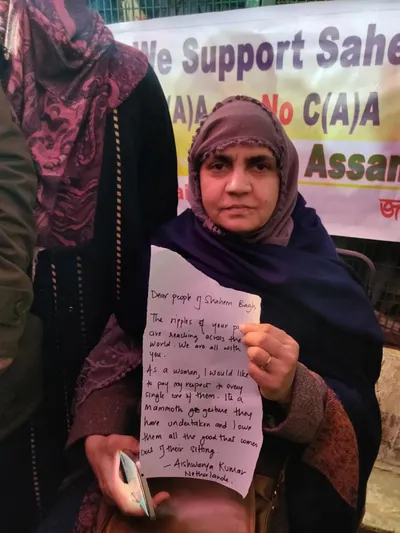 We Support Sahe
(A)A No C(A)A
Assam
জ
Dear people of Shaheen Bagh,
The ripples of your p
are reaching across the
world. We are all with
you.
As a woman, I would like
to pay my respect to every
single one of them. Its a
mammoth gesture they
have undertaken and I owe
them all the good that comes
out of their sitting.
- Aishwarya Kumar
Netherlands.